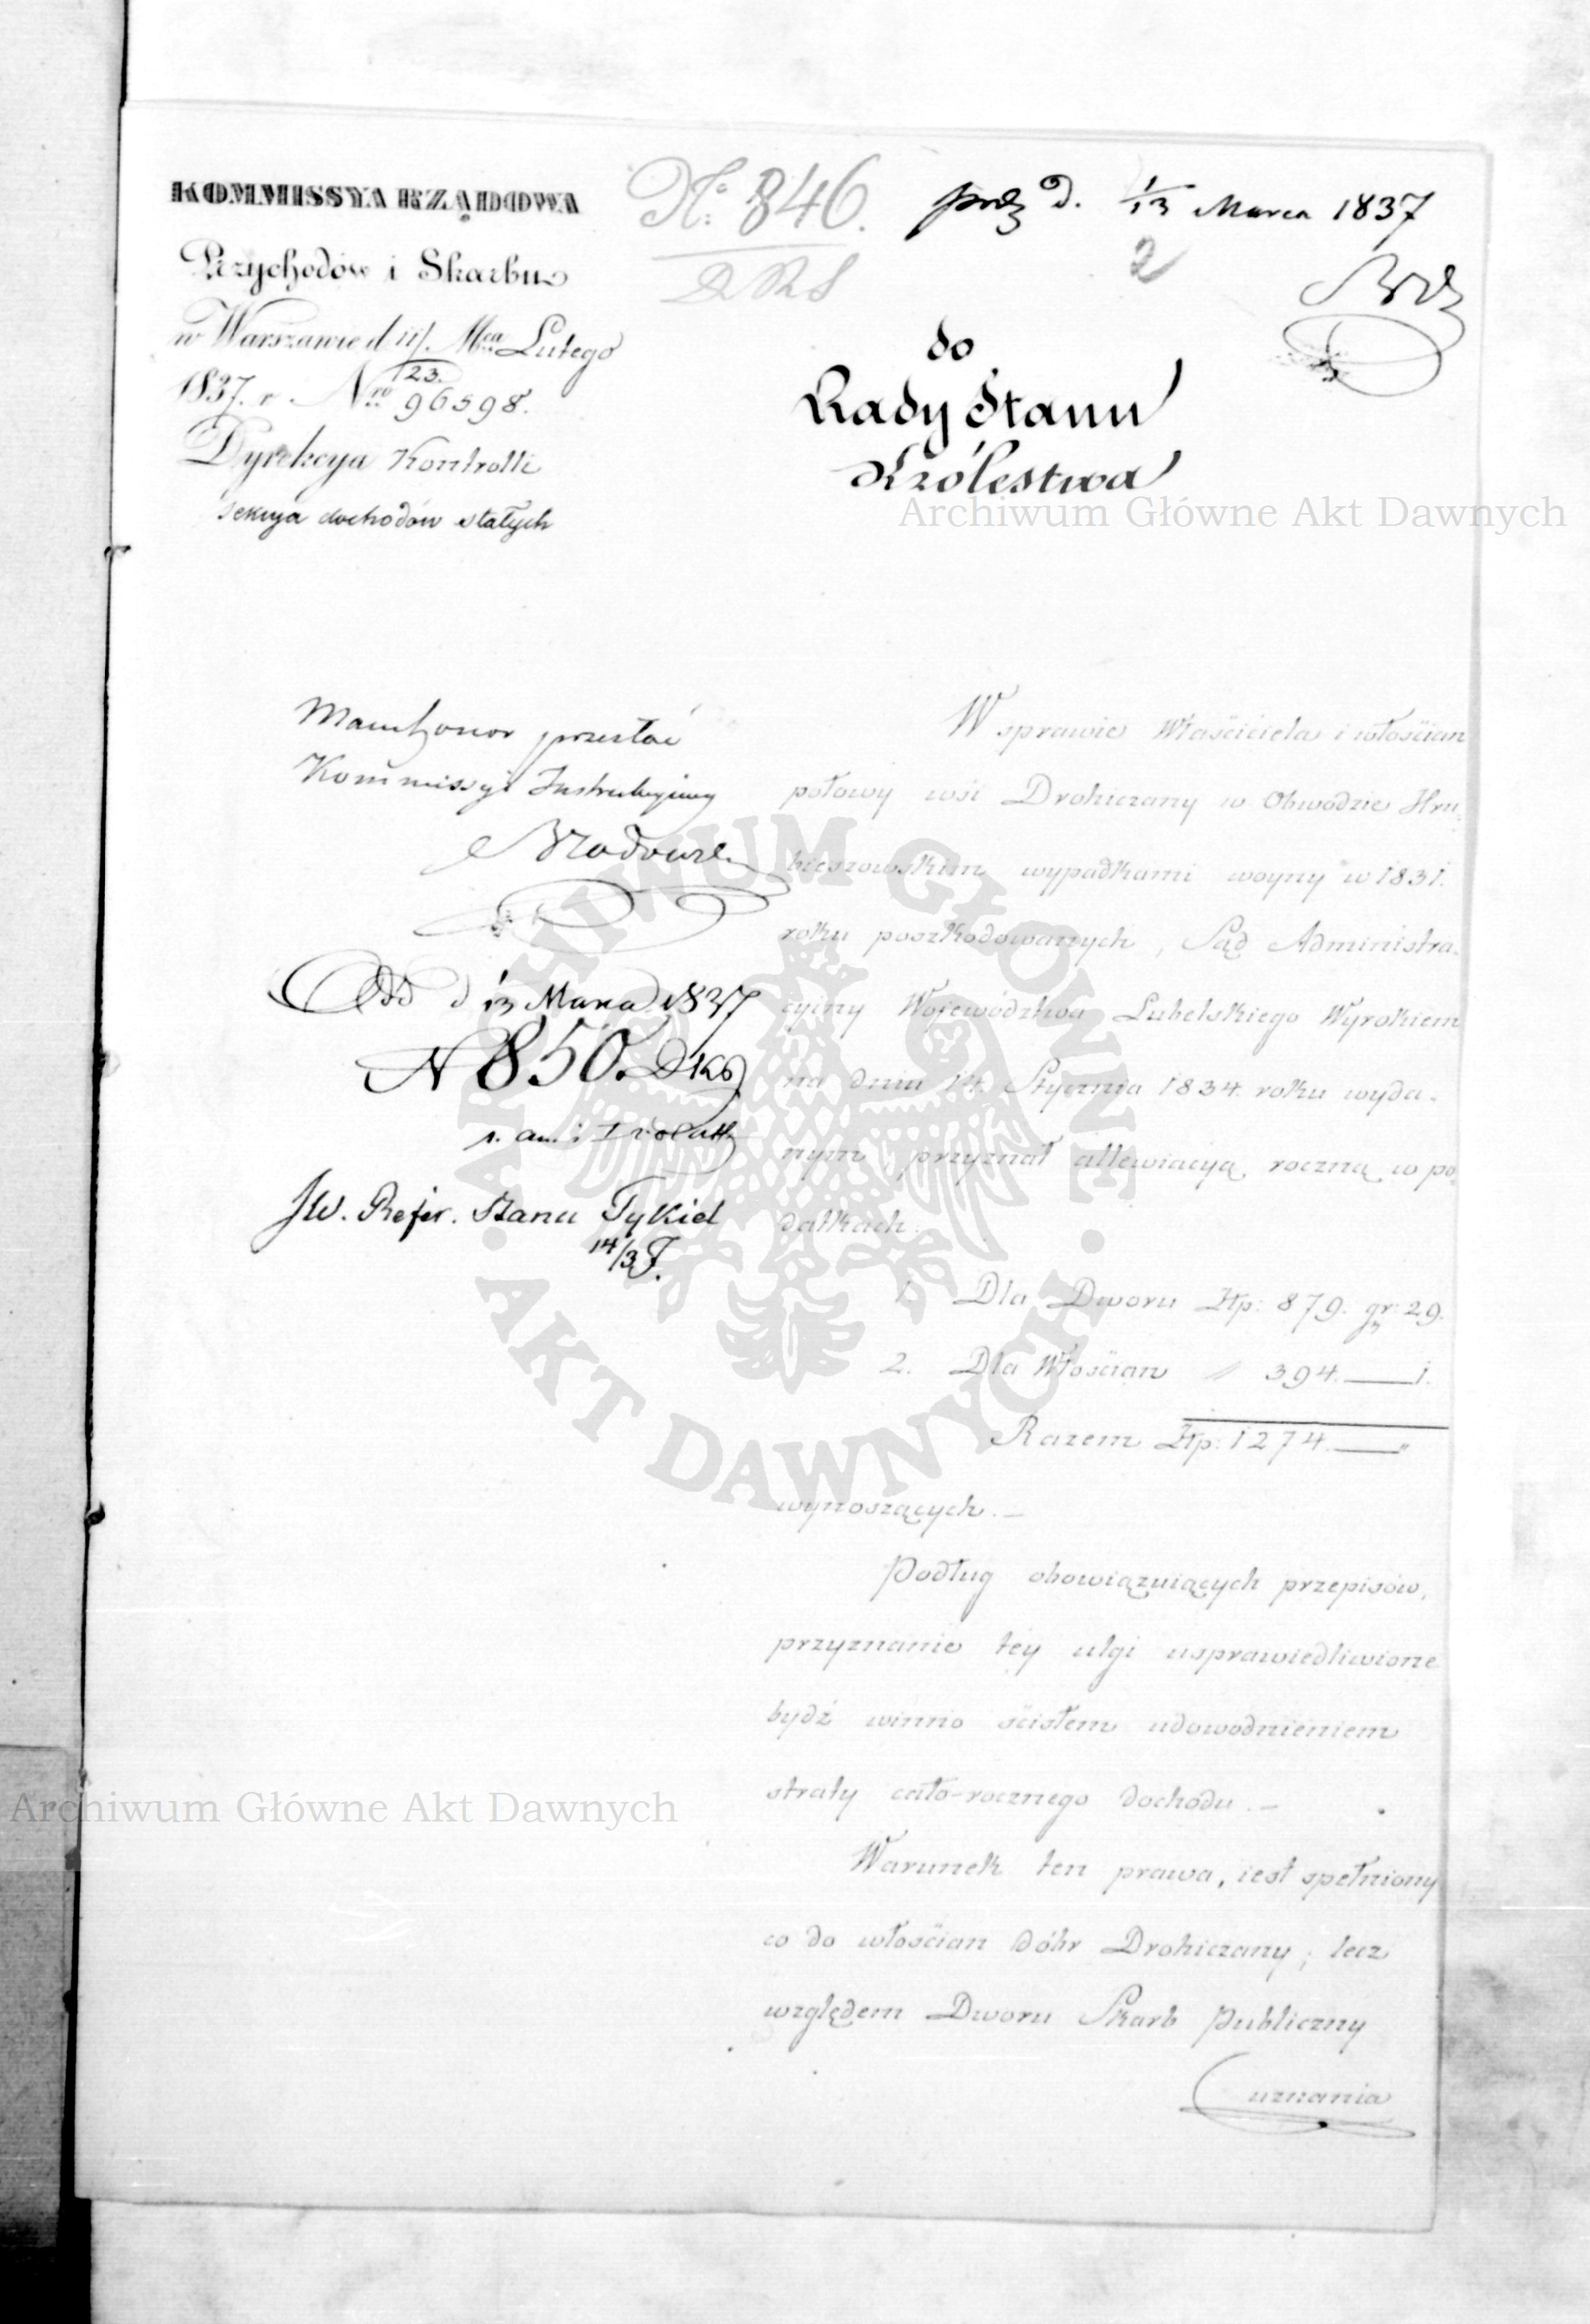 KOMMISSYA RZĄDOWA
Przychodów i Skarbu
w Warszawie d 11/23. Mca Lutego
1837. r. Nro 96598.
Dyrekcya Kontrolli
Sekcya dochodów stałych
No. 846.
prez d. 1/13 Marca 1837
2
do
Rady Stanu
Królestwa
Archiwum Główne Akt Dawnych
przesłać
Kommissyi Instrukcyjney
d 1/13 Marca 1837
N 850.
JW. Refer. Stanu Tykiel
14/3
W sprawie Właściciela i włościan
połowy wsi Drohiczany w Obwodzie Hru-
bieszowskim wypadkami woyny w 1831.
roku poszkodowanych, Sąd Administra-
cyiny Województwa Lubelskiego Wyrokiem
na dniu 14. Stycznia 1834. roku wyda-
nym, przyznał allewiacyą roczną w po-
datkach.
1. Dla Dworu Złp: 879. gr: 29.
2. Dla Włościan " 394. — 1.
Razem Złp: 1274. — "
wynoszących. —
Podług obowiązuiących przepisów,
przyznanie tey ulgi usprawiedliwione
bydź winno ścisłem udowodnieniem
straty cało-rocznego dochodu. —
Warunek ten prawa, iest spełniony
co do włościan dóbr Drohiczany; lecz
względem Dworu Skarb Publiczny
uznania
Archiwum Główne Akt Dawnych
ARCHIWUM GŁÓWNE
AKT DAWNYCH